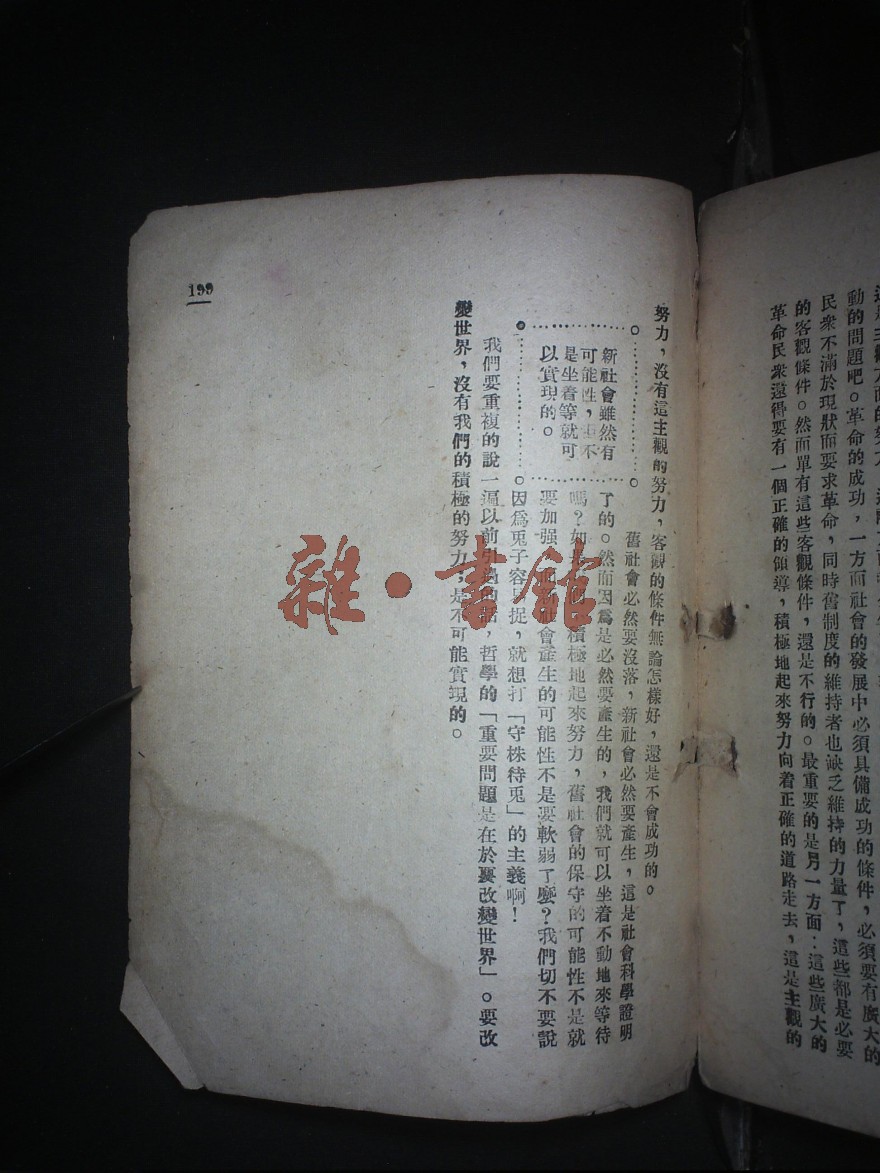 動的問題吧。革命的成功，一方面社會的發展中必須具備成功的條件，必須要有廣大的
民衆不滿於現狀而要求革命，同時舊制度的維持者也缺乏維持的力量了，這些都是必要
的客觀條件。然而單有這些客觀條件，還是不行的。最重要的是另一方面：這些廣大的
革命民衆還得要有一個正確的領導，積極地起來努力向着正確的道路走去，這是主觀的
努力，沒有這主觀的努力，客觀的條件無論怎樣好，還是不會成功的。
新社會雖然有
可能性，不
是坐着等就可
以實現的。
舊社會必然要沒落，新社會必然要產生，這是社會科學證明
了的。然而因爲是必然要產生的，我們就可以坐着不動地來等待
嗎？如積極地起來努力，舊社會的保守的可能性不是就
要加强，會產生的可能性不是要軟弱了麽？我們切不要說
因爲兎子容易捉，就想打「守株待兎」的主義啊！
我們要重複的說一遍以前引過的話，哲學的「重要問題是在於要改變世界」。要改
變世界，沒有我們的積極的努力，是不可能實現的。
199
雜·書館